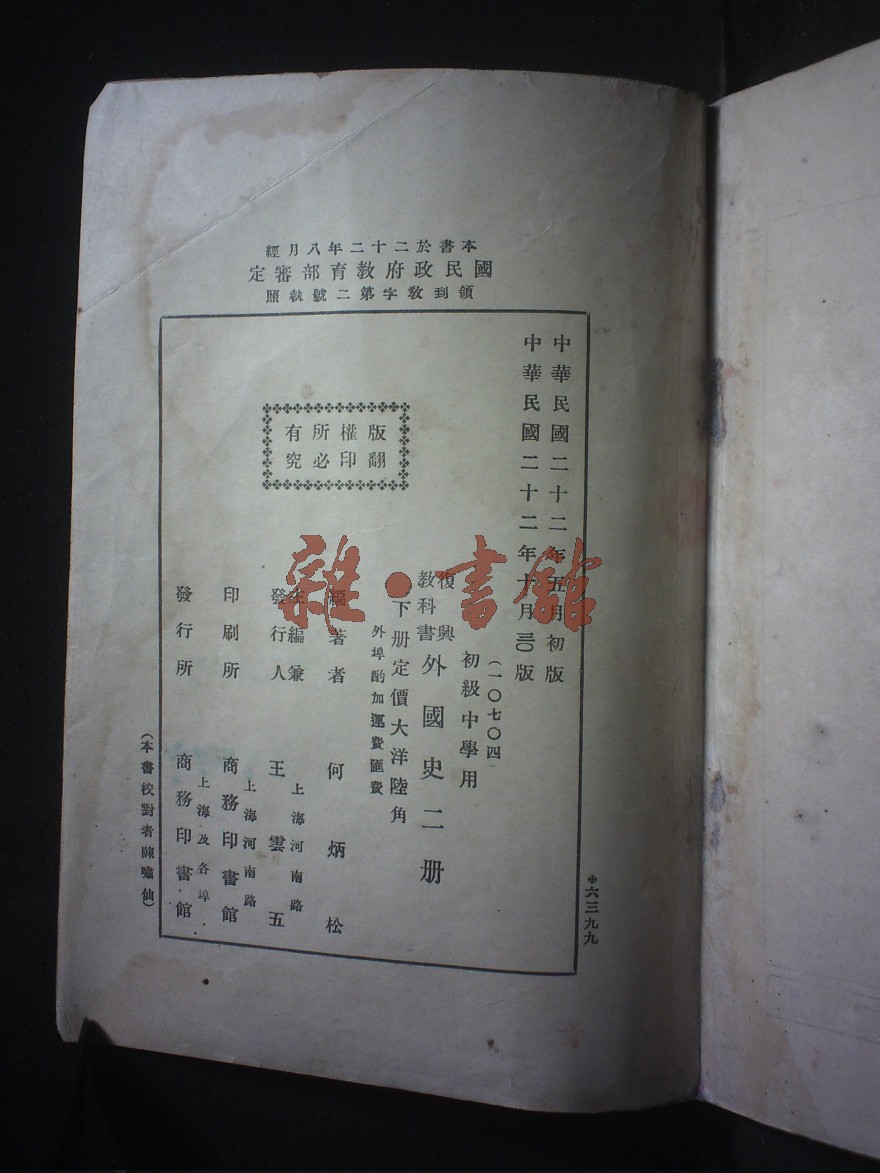 本書於二十二年八月經
國民政府教育部審定
領到教字第二號執照
中華民國二十二年五月初版
中華民國二十二年十月三〇版
(一〇七〇四)
初級中學用
復興
教科書
外國史二册
下册定價大洋陸角
外埠酌加運費匯費
版權所有
翻印必究
編著者 何炳松
上海河南路
主編兼
發行人 王雲五
上海河南路
印刷所 商務印書館
上海及各埠
發行所 商務印書館
(本書校對者陳嘯仙)
六三九九
雜·書館